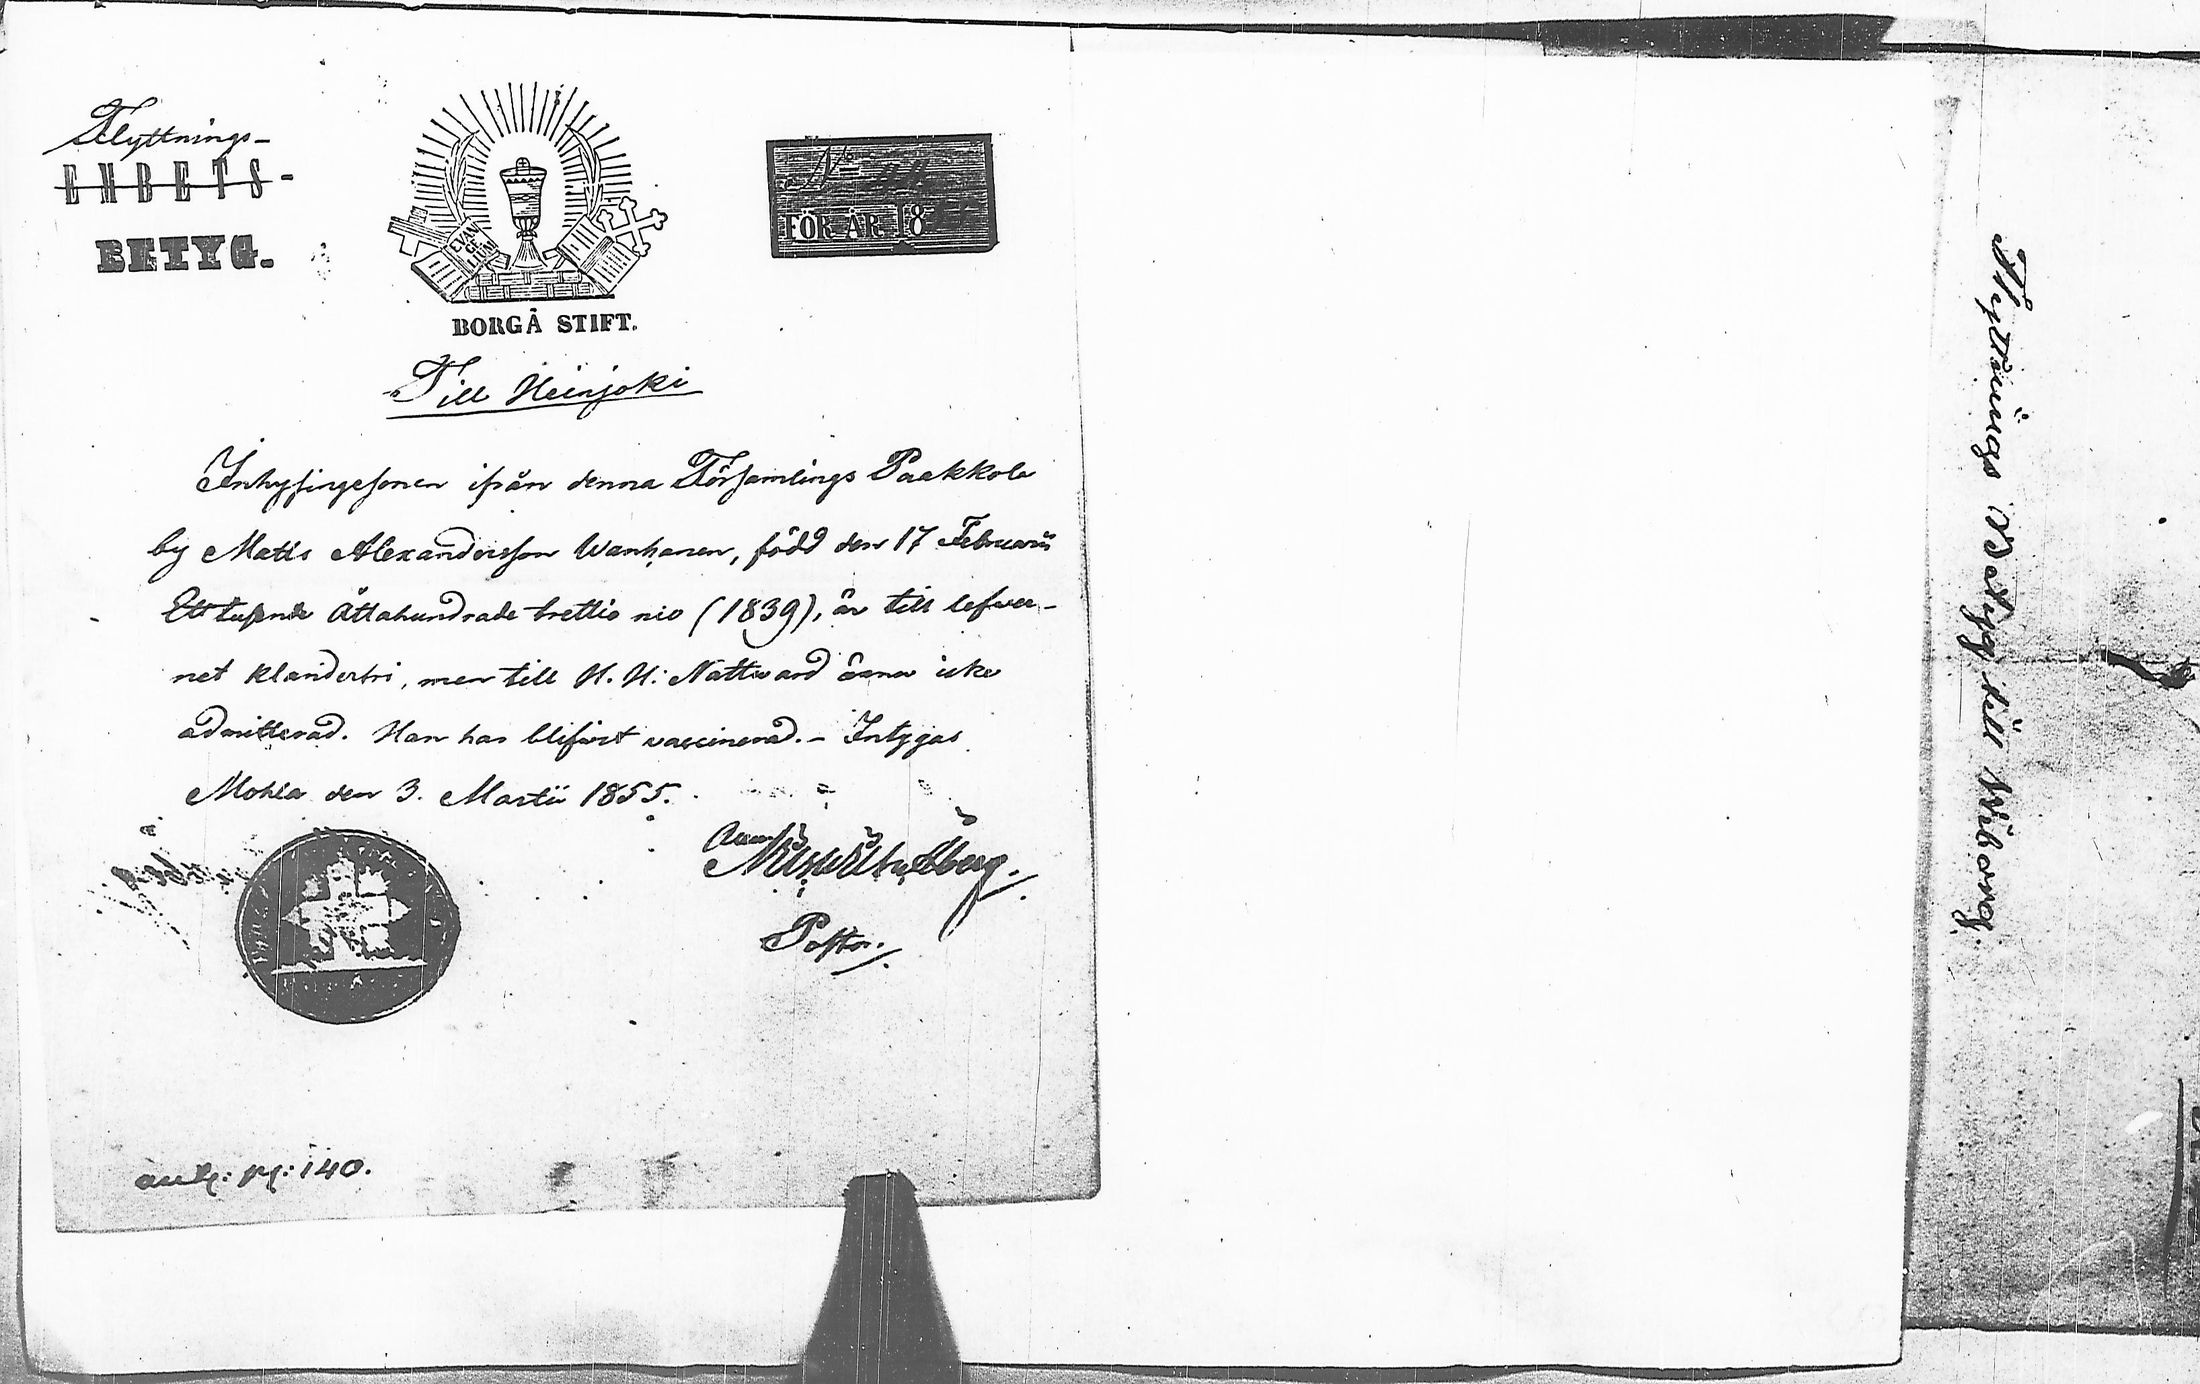 Flyttnings-
EMBETS-
BETYG.
EVAN
GE
LIUM
FÖR ÅR 18
BORGÅ STIFT.
Till Heinjoki
Inhysingesonen ifrån denna Församlings Paakkola
by Matts Alexandersson Wanhanen, född den 17 Februarii
Ett tusende Åttahundrade trettio nio (1839), är till lefver-
net klanderfri, men till H. H. Nattvard ännu icke
admitterad. Han har blifvit vaccinerad. – Intygas
Mohla den 3. Martii 1855.
Pastor.
ank: pg: 140.
Flyttnings Betyg till Wiborg.